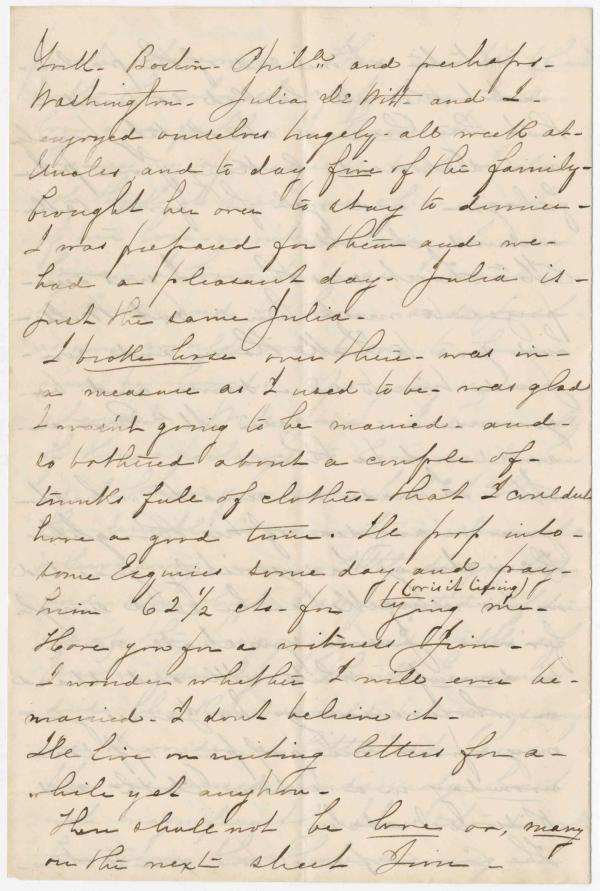 York - Boston - Phila and perhaps -
Washington - Julia De Witt - and I -
enjoyed ourselves hugely - all week at -
Uncles, and to day five of the family -
brought her over to stay to dinner -
I was prepared for them and we -
had a pleasant day - Julia is -
just the same Julia -
I broke loose over there - was in -
a measure as I used to be - was glad
I wasn't going to be married - and -
so bothered about a couple of -
trunks full of clothes - that I couldnt
have a good time. Ile pop into -
some Esquires some day and pay -
(or is it tieing)
him 62 1/2 cts - for tying me -
Have you for a witness Jim -
I wonder whether I will ever be -
married - I dont believe it -
Ile live on writing letters for a -
while yet anyhow -
There shall not be love or, marry
on the next sheet Jim -